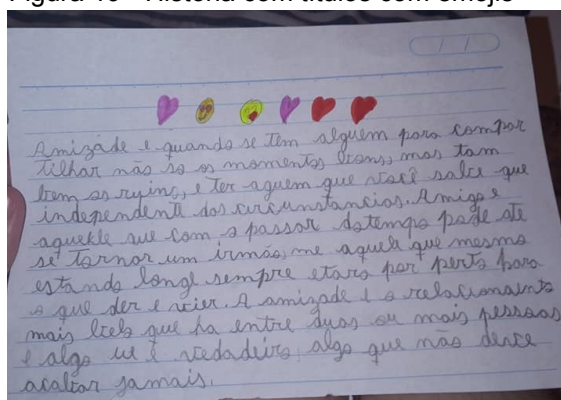 Figura 10 - História com títulos com emojis
Amizade e quando se tem alguem para compar
tilhar não so os momentos brons, mas tam
bem os ruins, e ter aguem que você sabe que
independente das circunstancias. Amigo e
aquekle que com o passar dotempo pode ate
se tornar um irmão, me aquela que mesmo
estando longe sempre etara por perto para
o que der e vier. A amizade e o relacionamento
mais belo que ha entre duas ou mais pessoas
e algo ue é vedadeiro, algo que não deve
acabar jamais.